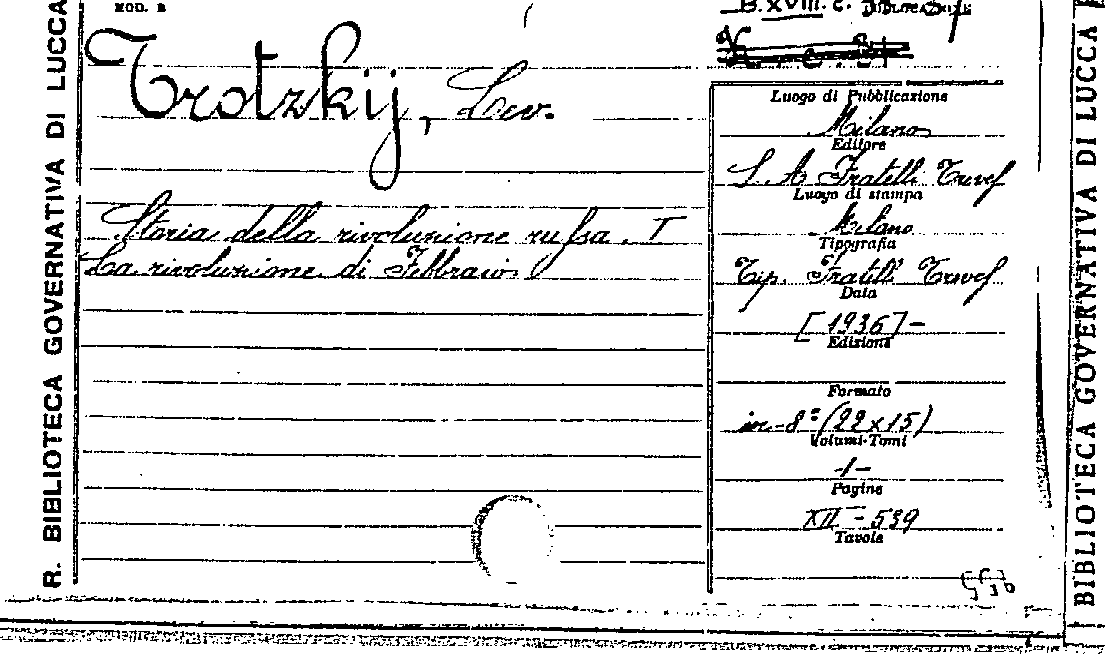 MOD. B
B. XVIII. c.
COLLOCAZIONE
Trotzkij, Leo.
Storia della rivoluzione russa. I
La rivoluzione di Febbraio
Luogo di Pubblicazione
Milano
Editore
S. A. Fratelli Treves
Luogo di stampa
Milano
Tipografia
Tip. Fratelli Treves
Data
[1936] -
Edizione
Formato
in-8° (22x15)
Volumi-Tomi
-1-
Pagine
XII - 539
Tavole
R. BIBLIOTECA GOVERNATIVA DI LUCCA
BIBLIOTECA GOVERNATIVA DI LUCCA